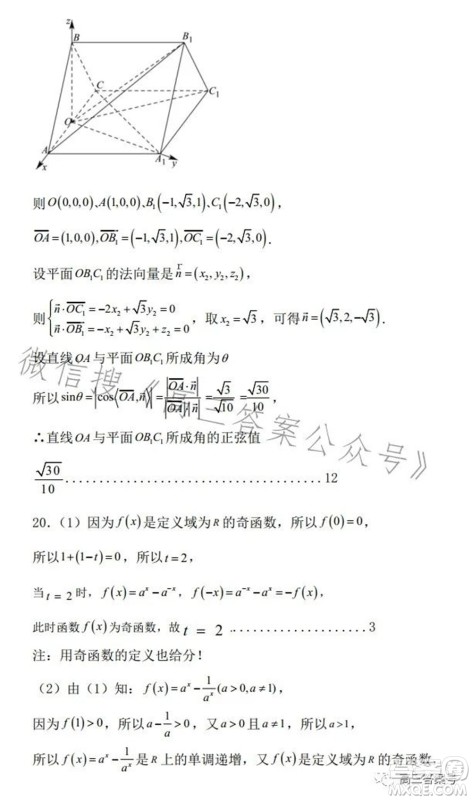 z
B
B₁
C
C₁
O
A
A₁
x
y
则O(0,0,0)、A(1,0,0)、B₁(-1,√3,1)、C₁(-2,√3,0),
OA=(1,0,0),OB₁=(-1,√3,1),OC₁=(-2,√3,0).
设平面OB₁C₁的法向量是n=(x₂,y₂,z₂),
则{n·OC₁=-2x₂+√3y₂=0
n·OB₁=-x₂+√3y₂+z₂=0, 取x₂=√3, 可得n=(√3,2,-√3).
设直线OA与平面OB₁C₁所成角为θ
所以sinθ=|cos⟨OA,n⟩|=|OA·n|/|OA|·|n|=√3/√10=√30/10,
∴直线OA与平面OB₁C₁所成角的正弦值
√30/10....................................12
20.(1)因为f(x)是定义域为R的奇函数,所以f(0)=0,
所以1+(1-t)=0,所以t=2,
当t=2时,f(x)=aˣ-a⁻ˣ,f(-x)=a⁻ˣ-aˣ=-f(x),
此时函数f(x)为奇函数,故t=2....................3
注:用奇函数的定义也给分!
(2)由(1)知:f(x)=aˣ-1/aˣ(a>0,a≠1),
因为f(1)>0,所以a-1/a>0,又a>0且a≠1,所以a>1,
所以f(x)=aˣ-1/aˣ是R上的单调递增,又f(x)是定义域为R的奇函数,
微信搜《高三答案公众号》
高三答案号
MXQE.COM